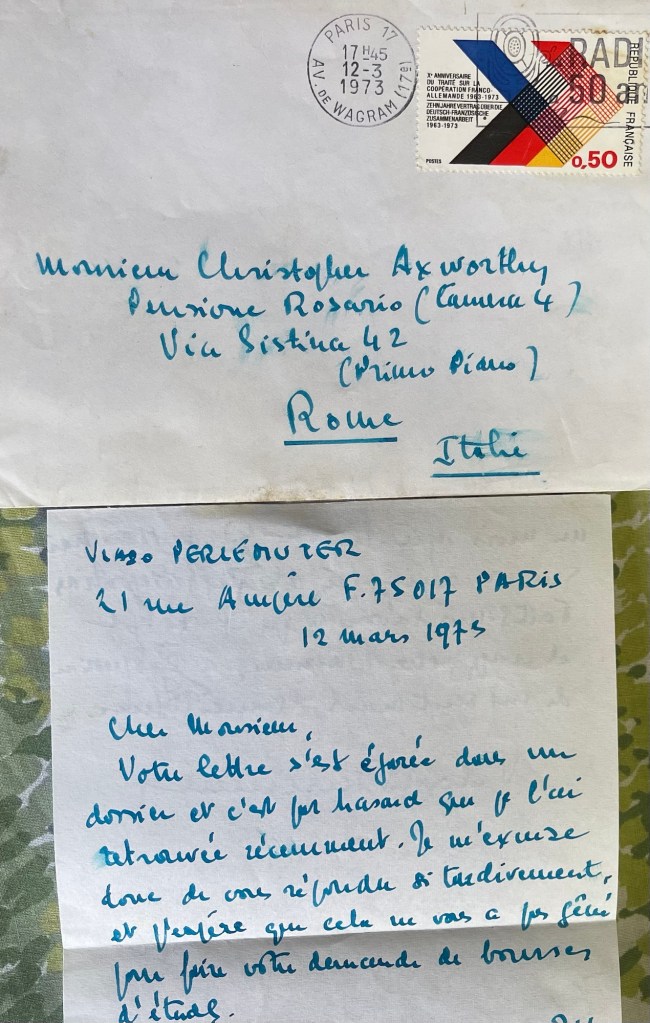 PARIS 17
17H45
12-3
1973
AV. DE WAGRAM (17e)
RADI
50 an
Xe ANNIVERSAIRE
DU TRAITÉ SUR LA
COOPÉRATION FRANCO-
ALLEMANDE 1963-1973
ZEHN JAHRE VERTRAG ÜBER DIE
DEUTSCH-FRANZÖSISCHE
ZUSAMMENARBEIT
1963-1973
POSTES
0,50
RÉPUBLIQUE FRANÇAISE
Monsieur Christopher Axworthy
Pensione Rosario (Camera 4)
Via Sistina 42
(Primo Piano)
Rome
Italie
VLADO PERLEMUTER
21 rue Ampère F.75017 PARIS
12 mars 1973
Cher Monsieur,
Votre lettre s'est égarée dans un
dossier et c'est par hasard que je l'ai
retrouvée récemment. Je m'excuse
donc de vous répondre si tardivement,
et j'espère que cela ne vous a pas gêné
pour faire votre demande de bourses
d'études.